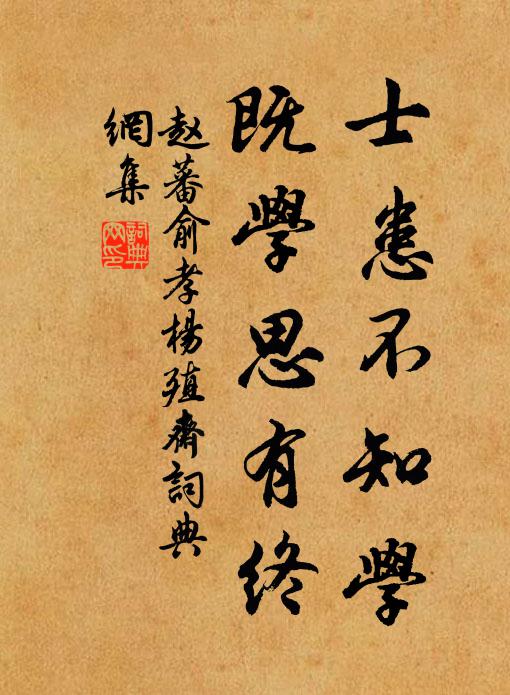 士患不知學
既學思有终
赵蕃俞孝楊殖齋詞典
網集
詞典
网印